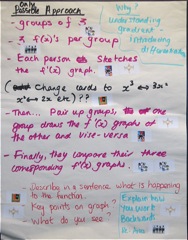 One Possible Approach
Why?
- groups of 3
understanding gradient
- 3 f(x)'s per group
introducing differentiation
- Each person sketches
the f(x) graph.
(Change cards to x³ ↔ 3x²
x² ↔ 2x etc)??
- Then... Pair up groups, one
group draws the f'(x) graphs of
the other and vise-versa
- Finally, they compare their three
corresponding f'(x) graphs.
- Describing in a sentence what is happening
to the function.
- Key points on graph.
- What do you see?
Explain how
you went
Backwards